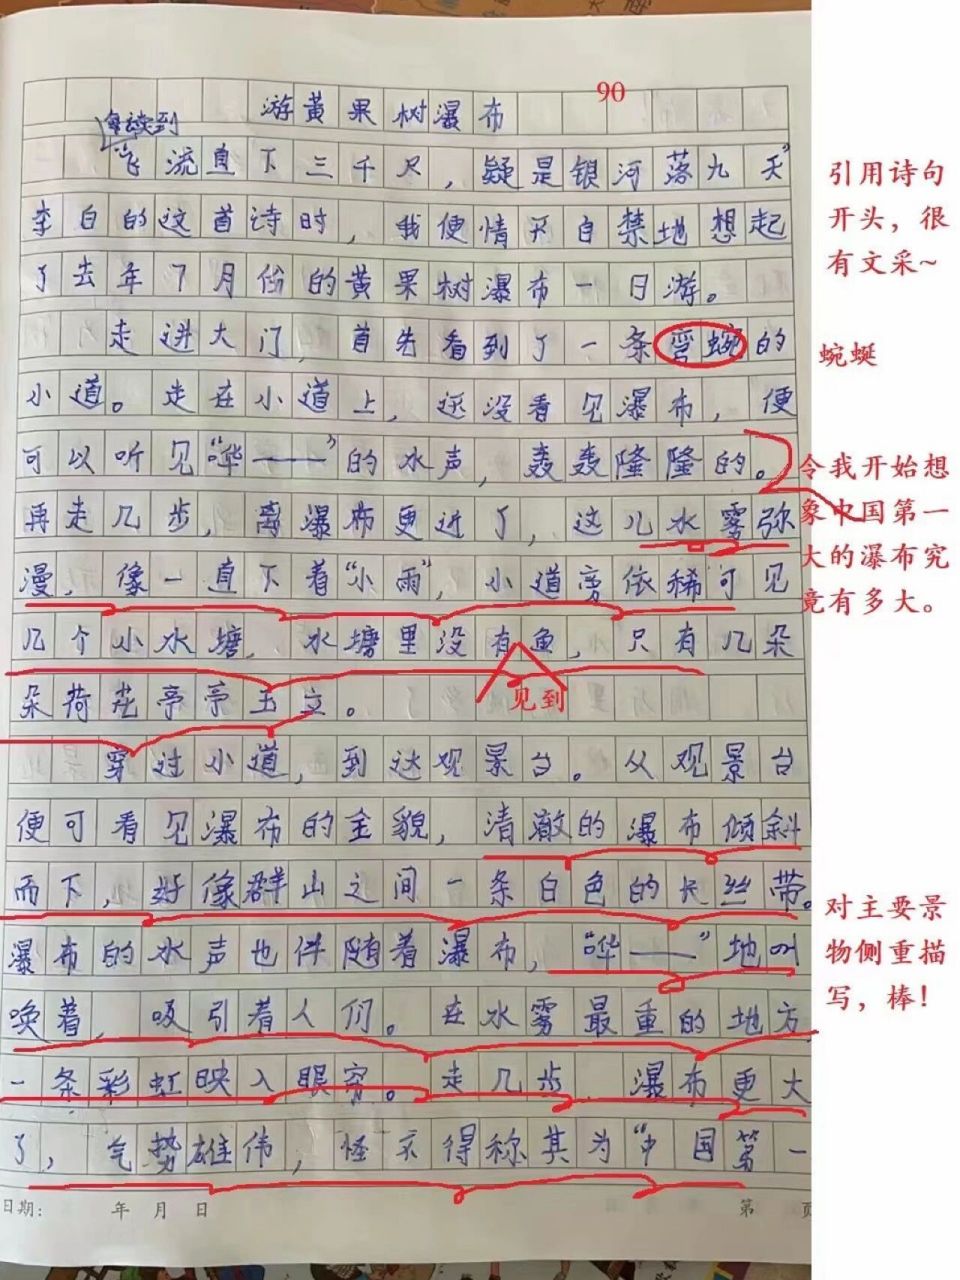 90
游黄果树瀑布
每读到
“飞流直下三千尺，疑是银河落九天”
李白的这首诗时，我便情不自禁地想起
了去年7月份的黄果树瀑布一日游。
走进大门，首先看到了一条弯蜿的
小道。走在小道上，还没看见瀑布，便
可以听见“哗——”的水声，轰轰隆隆的。
再走几步，离瀑布更近了，这儿水雾弥
漫，像一直下着“小雨”，小道旁依稀可见
几个小水塘，水塘里没有鱼，只有几朵
见到
朵荷花亭亭玉立。
穿过小道，到达观景台。从观景台
便可看见瀑布的全貌，清澈的瀑布倾斜
而下，好像群山之间一条白色的长丝带。
瀑布的水声也伴随着瀑布，“哗——”地叫
唤着，吸引着人们。在水雾最重的地方，
一条彩虹映入眼帘。走几步，瀑布更大
了，气势雄伟，怪不得称其为“中国第一
日期： 年 月 日 第 页
引用诗句
开头，很
有文采~
蜿蜒
令我开始想
象中国第一
大的瀑布究
竟有多大。
对主要景
物侧重描
写，棒！